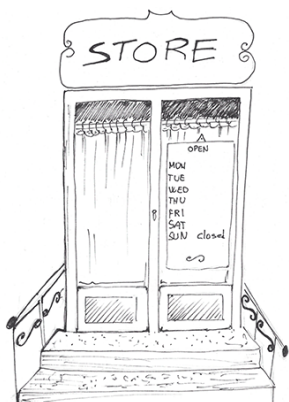 STORE
OPEN
MON
TUE
WED
THU
FRI
SAT
SUN closed